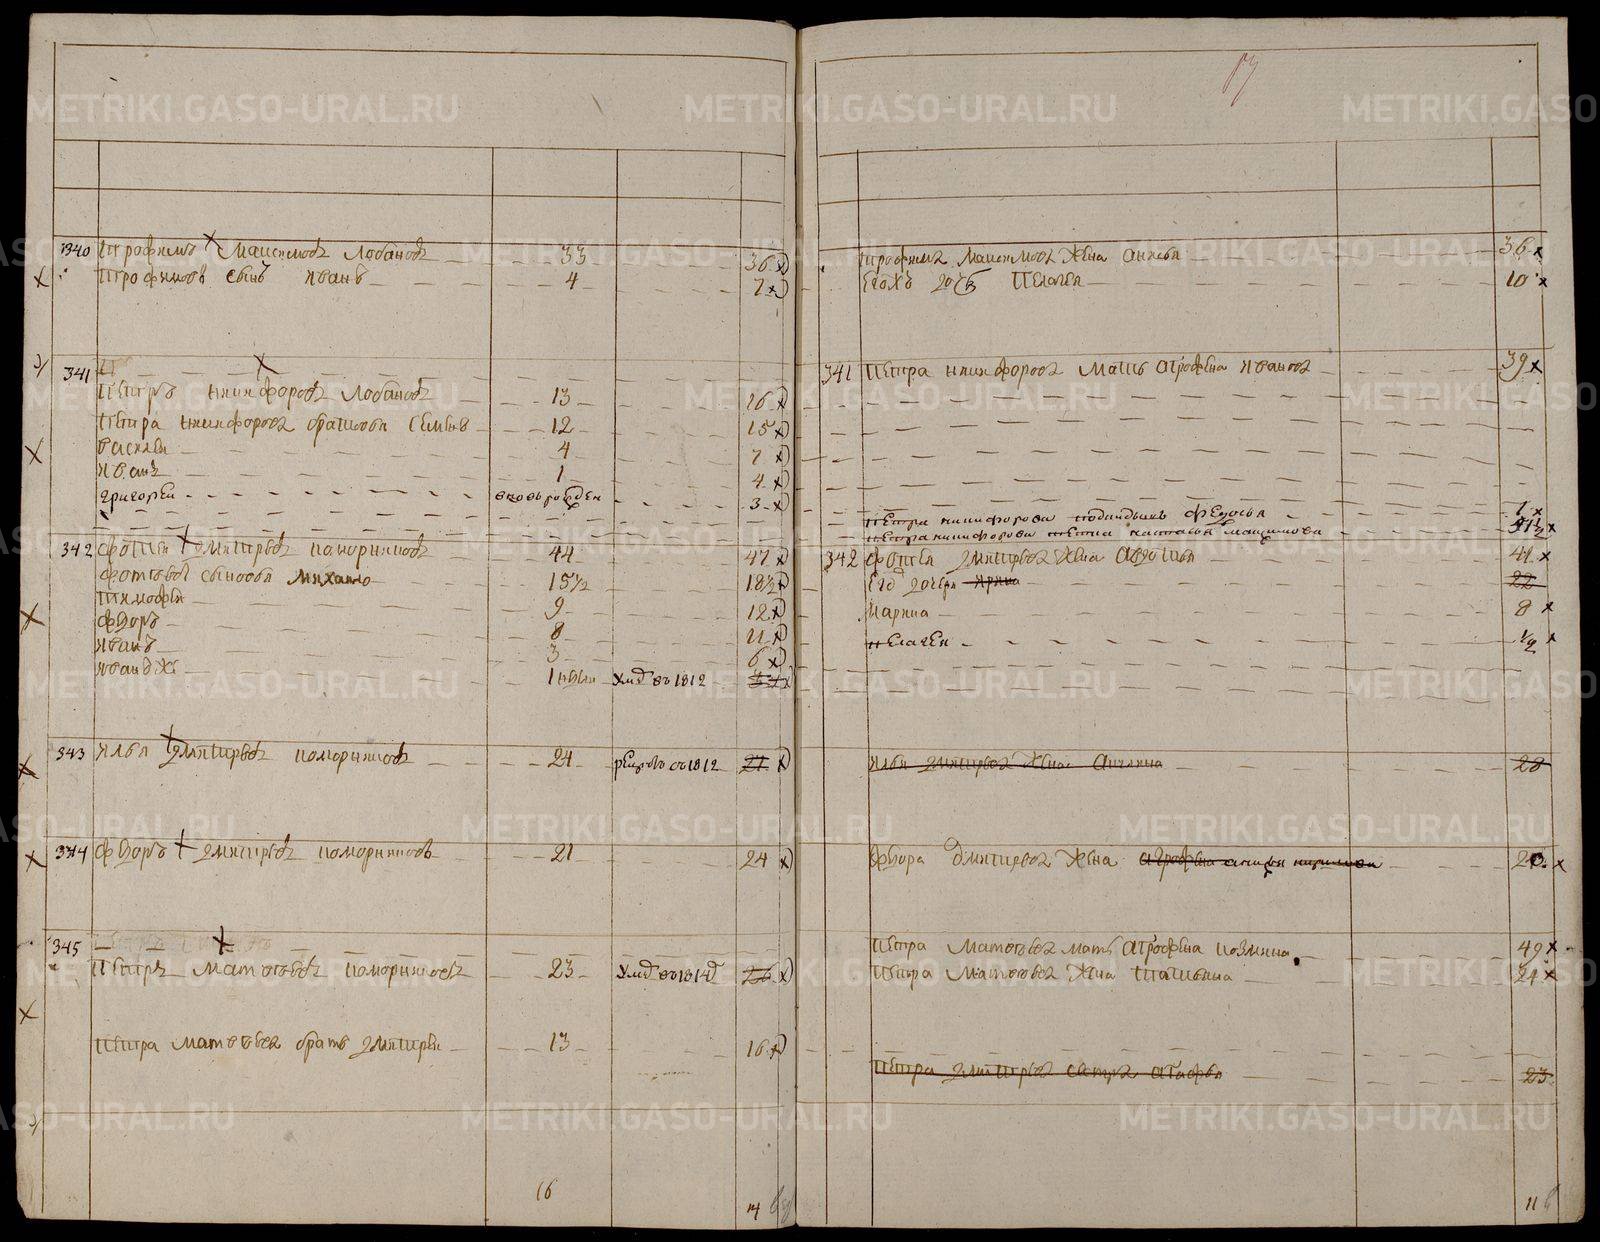 340 Трофимъ Максимовъ Лобановъ 33 36
Трофимовъ сынъ Иванъ 4 7
341
Петръ Никифоровъ Лобановъ 13 16
Петра Никифорова братовья Семенъ 12 15
Василей 4 7
Иванъ 1 4
Григорей вновь рожден 3
342 Фотей Дмитревъ Поморниковъ 44 47
Фотеевы сыновья Михайло 15½ 18½
Тимофей 9 12
Федоръ 8 11
Иванъ 3 6
Иванъ же 1 умр въ 1812
343 Илья Дмитревъ Поморниковъ 24 27
344 Федоръ Дмитревъ Поморниковъ 21 24
345
Петръ Матвеевъ Поморниковъ 23 умр въ 1814 26
Петра Матвеева братъ Дмитрей 13 16
16 14
Трофима Максимова жена Анисья 36
Ево дочь Пелагея 10
341 Петра Никифорова мать Агрофена Иванова 39
Петра Никифорова Федосья 1
Петра Никифорова Максимова
342 Фотея Дмитрева жена Авдотья 41
Ево дочери Ирина 22
Марина 8
Пелагея ½
Ильи Дмитрева жена Анисина 28
Федора Дмитрева жена Агрофена
Петра Матвеева мать Агрофена Козмина 49
Петра Матвеева жена Татьяна 24
Петра Дмитрева сестра Агафья 23
11
METRIKI.GASO-URAL.RU